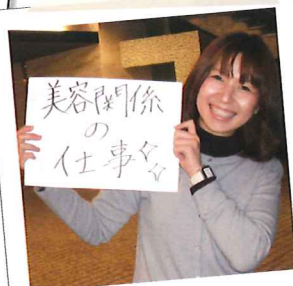 美容関係
の
仕事☆☆